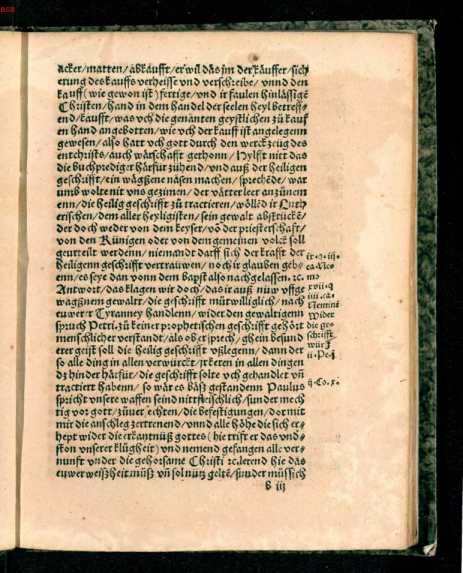 acker/matten/abkaufft/er wil das jm der käuffer/sich
erung des kauffs verheisse vnd verschreibe/vnnd den
kauff (wie gewon ist) fertige/vnd ir faulen hinlässige
Christen/hand in dem handel der seelen heyl betreff-
end/kaufft/was vch die genanten geystlichen zů kauf
en hand angebotten/wie vch der kauff ist angelegenn
gewesen/also hatt vch gott durch den werckzeug des
entchrists/auch wärschafft gethonn/Hylfft nit das
die bůchprediger härfür zühend/vnd auß der heiligen
geschrifft/ein wägßene näsen machen/sprechēde/war
umb wolte nit vns gezimen/der vätter leer anzünem
enn/die heilig geschrifft zů tractieren/wöllēd ir Luth
erischen/dem aller heyligisten/sein gewalt abstrickē/
der doch weder von dem keyser/võ der priesterschaft/
von den Künigen oder von dem gemeinen volck soll
geurteilt werdenn/niemandt darff sich der krafft der
heiligenn geschrifft vertrauwen/noch ir glauben geb-
enn/es seye dan vonn dem bapst also nachgelassen. ꝛc.
Antwort/das klagen wir doch/das ir auß nüw uffge
wagßnem gewalt/die geschrifft můtwilliglich/nach
euwer Tyranney handlenn/wider den gewaltigenn
spruch Petri. zů keiner prophetischen geschrifft gehört
menschlicher verstandt/als ob er sprech/ghein besund
erer geist soll die heilig geschrifft vßlegenn/dann der
so alle ding in allen verwürckt/
dz hinder härfür/die geschrifft solte vch gehandlet vñ
tractiert habenn/so wär es bäß gestandenn Paulus
spricht vnsere waffen seind nitt fleischlich/sunder mech
tig vor gott/zů ver echten/die befestigungen/dormit
mir die anschleg zertrenend/vnnd alle höhe die sich er-
hept wider die erkantnüß gottes (hie trifft er das vnd-
ston vnserer klůgheit) vnd nemend gefangen alle ver-
nunft vnder die gehorsame Christi ꝛc. lerend hie das
euwer weißheit můß vñ sol nütz geltē/sunder müssich
ix.q.iii.
ca. Ne-
mo
xvii.q
iiii.ca.
Nemini
Wider
die ges
schrifft
würt
ii.Pe.j.
ij.Co.x.
B iij